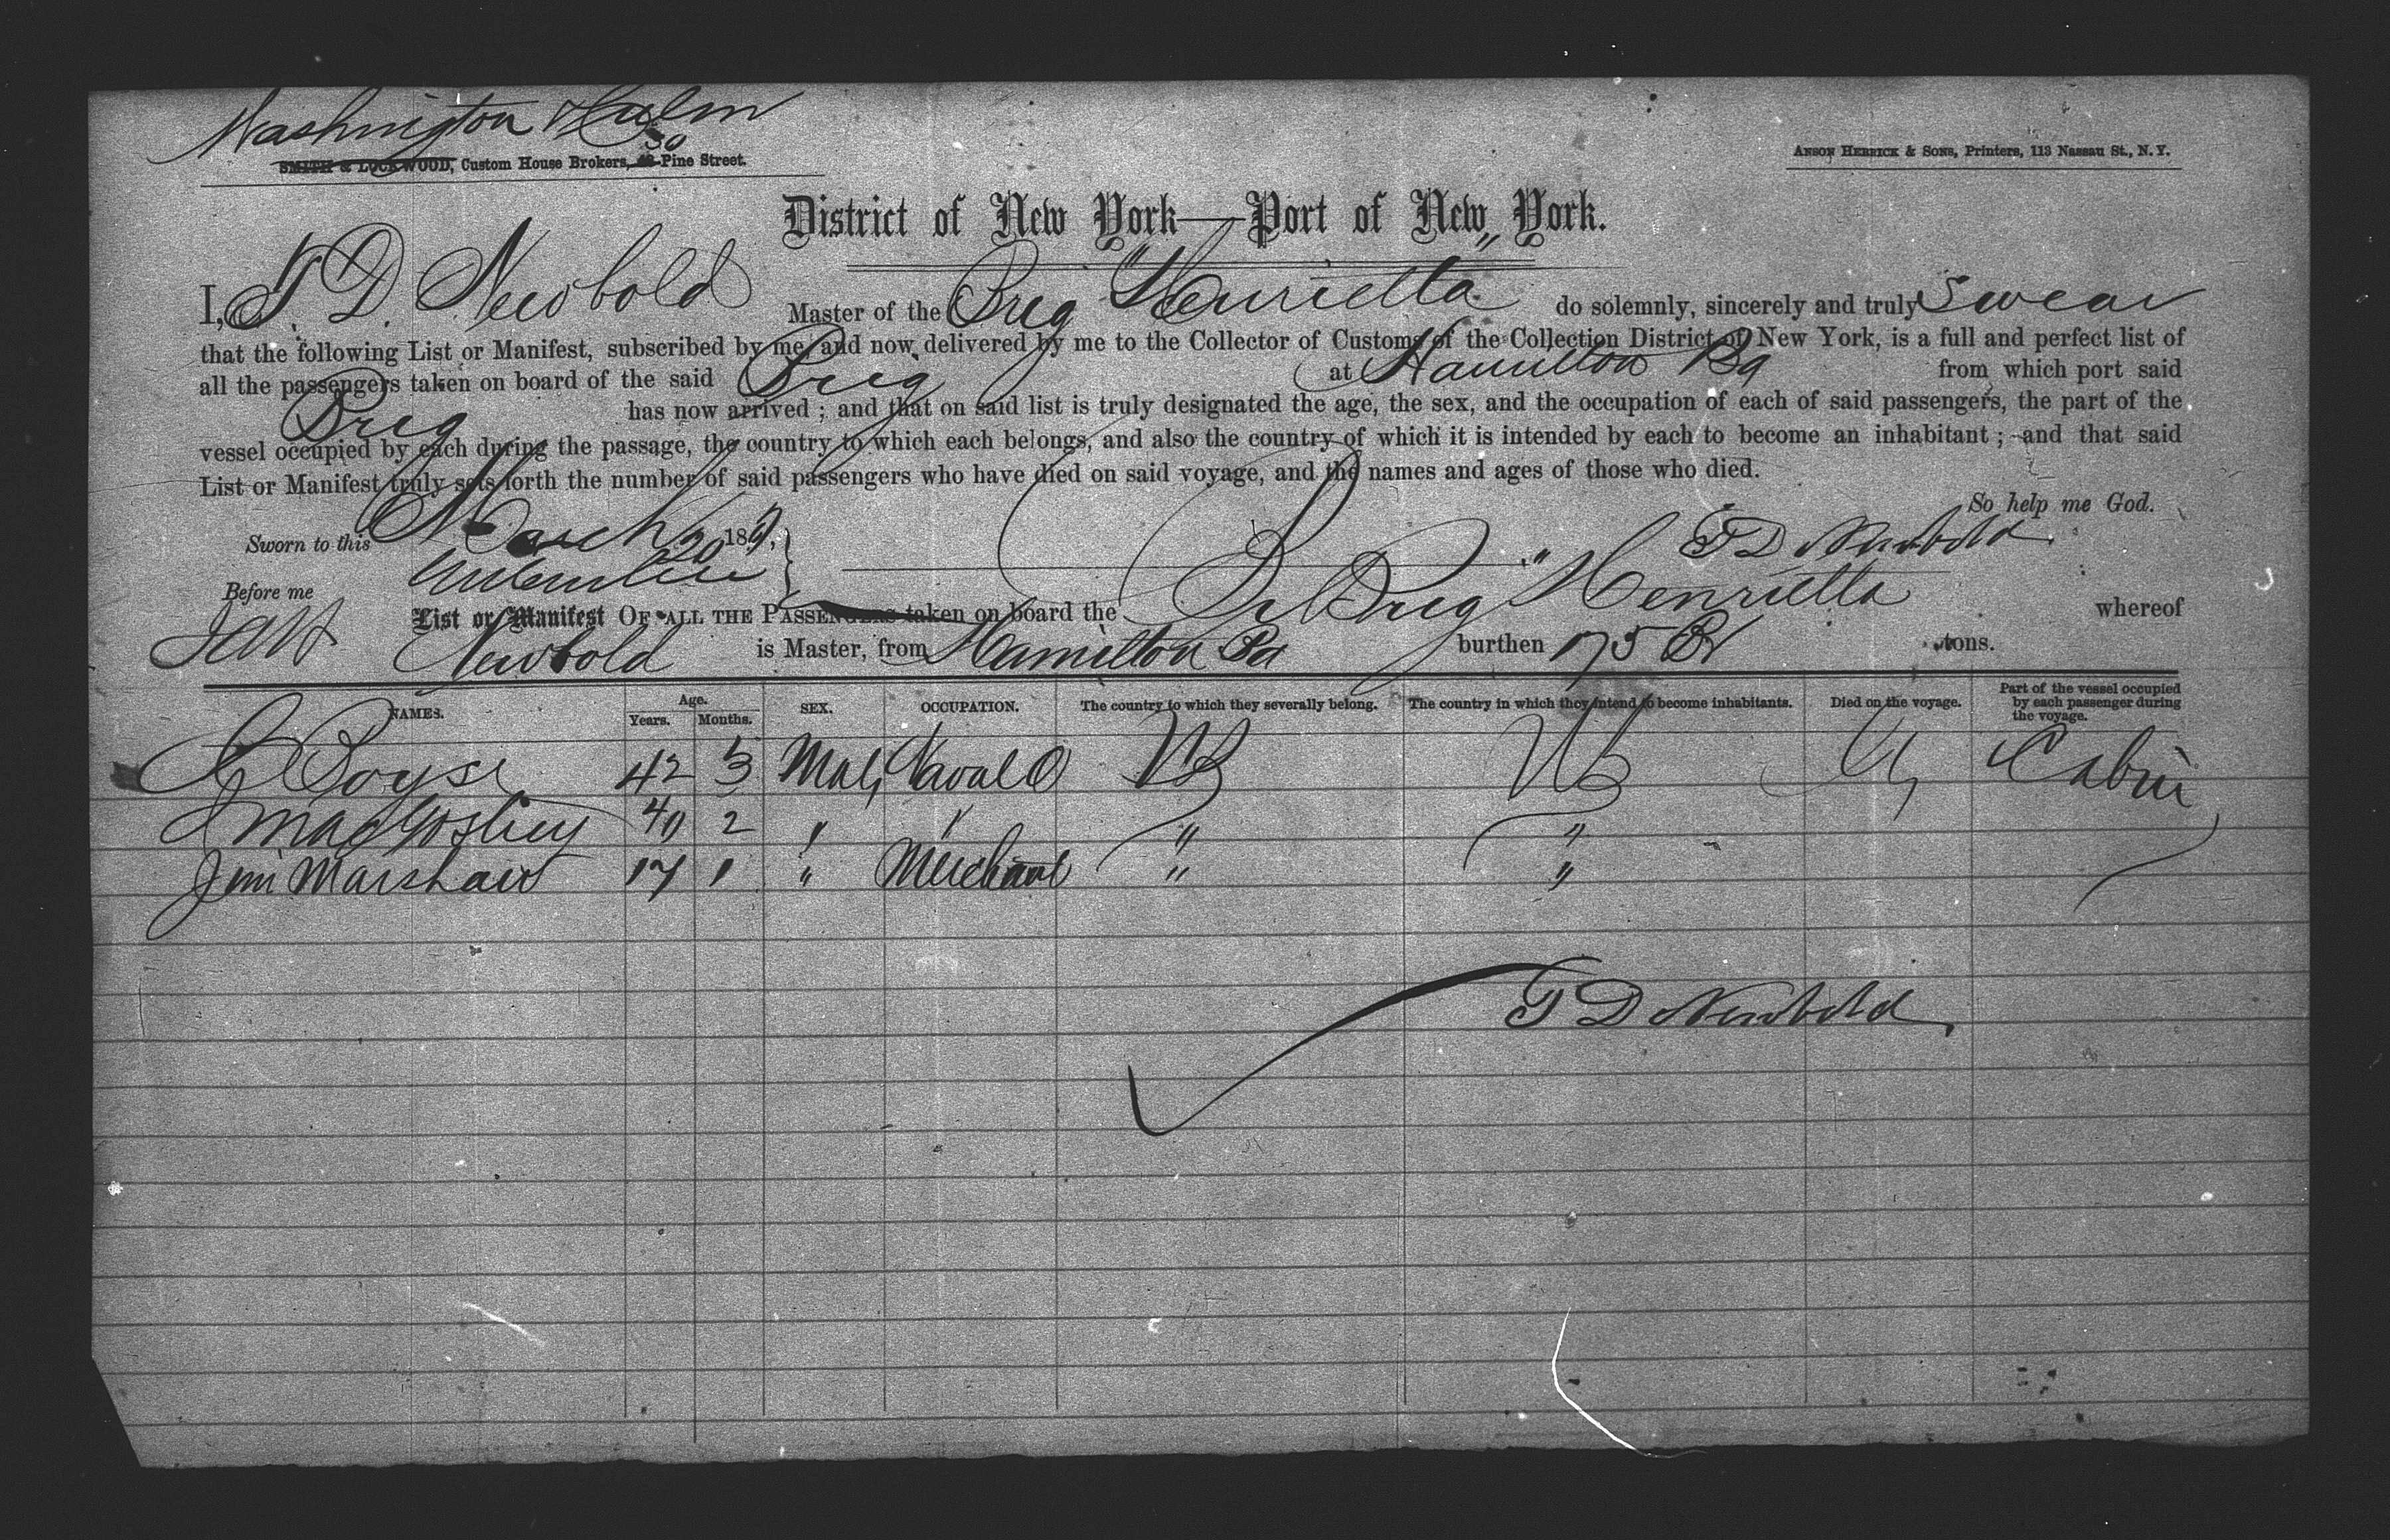 Washington Hulm
30
SMITH & LOCKWOOD, Custom House Brokers, Pine Street.
ANSON HERRICK & SONS, Printers, 113 Nassau St., N. Y.
District of New York—Port of New York.
I, T. D. Newbold Master of the Brig "Henrietta" do solemnly, sincerely and truly Swear
that the following List or Manifest, subscribed by me, and now delivered by me to the Collector of Customs of the Collection District of New York, is a full and perfect list of
all the passengers taken on board of the said Brig at Hamilton Ba from which port said
Brig has now arrived ; and that on said list is truly designated the age, the sex, and the occupation of each of said passengers, the part of the
vessel occupied by each during the passage, the country to which each belongs, and also the country of which it is intended by each to become an inhabitant ; and that said
List or Manifest truly sets forth the number of said passengers who have died on said voyage, and the names and ages of those who died.
So help me God.
Sworn to this March 20 1869, T D Newbold
Before me
List or Manifest OF ALL THE PASSENGERS taken on board the Br Brig "Henrietta whereof
Newbold is Master, from Hamilton Ba burthen 175 Br tons.
NAMES. Age. Years. Months. SEX. OCCUPATION. The country to which they severally belong. The country in which they intend to become inhabitants. Died on the voyage. Part of the vessel occupied by each passenger during the voyage.
Boyse 42 3 Male Naval O Cabin
40 2 " " " "
Jim Marshall 17 1 " Merchant " "
T D Newbold